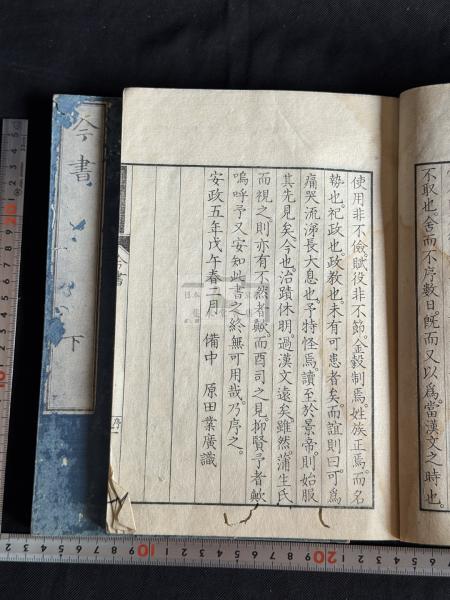 不取也。舍而不序數日。既而又以爲。當漢文之時也。
使用非不儉。賦役非不節。金穀制焉。姓族正焉。而名
勢也。祀政也。政教也。未有可患者矣。而誼則曰。可爲
痛哭流涕長大息也。予特怪焉。讀至於景帝。則始服
其先見矣。今也。治蹟休明。過漢文遠矣。雖然。蒲生氏
而視之。則亦有不然者歟。而酉司之見。抑賢予者歟
嗚呼。予又安知此書之終無可用哉。乃序之。
安政五年戊午春二月 備中 原田業廣識
今書
序一
今書
下